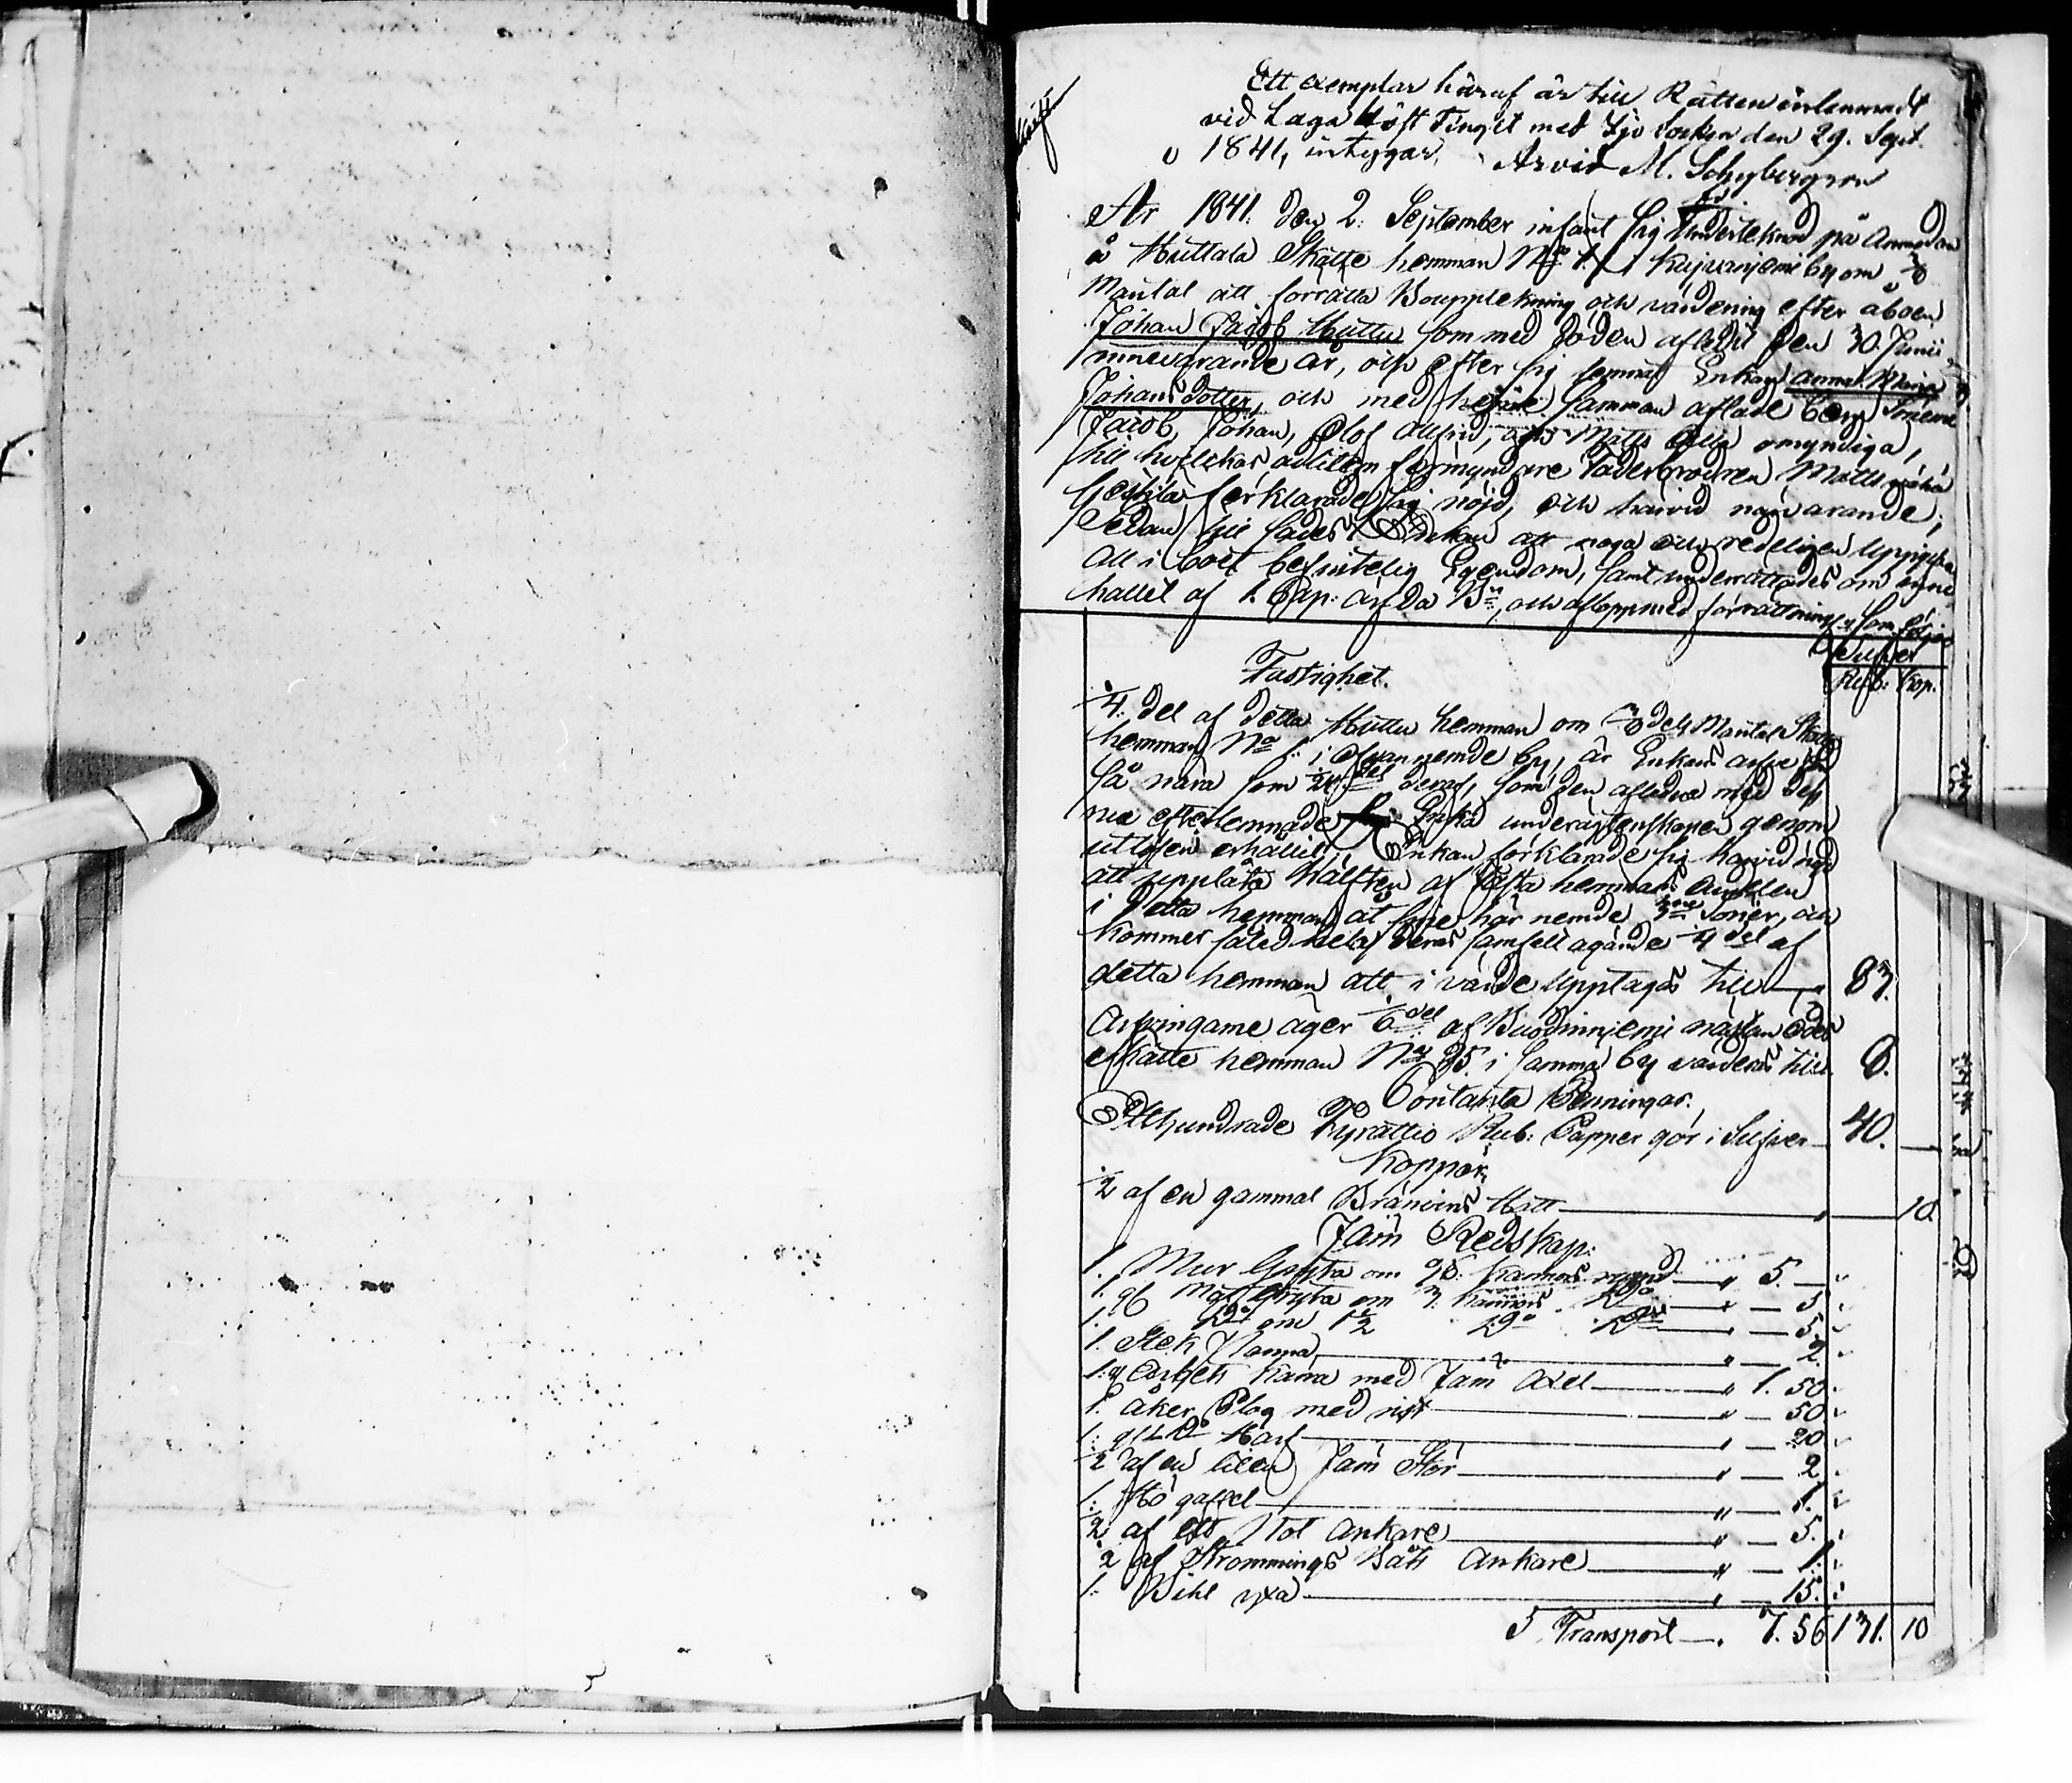 Ett exemplar häraf är till Rätten inlemnadt
vid Laga Höst Tinget med Ijo Socken den 29. Sept.
1841, intygar. Arvid M. Schybergson
År 1841. den 2. September infant sig Underteknad på Anmodan
å Huttala Skatte hemman No 1. i Kuivaniemi by om
Mantal att förrätta Boupptekning och värdering efter åboen
Johan Jacob Huttu som med döden aflidit den 30. Junii
innevarande år, och efter sig lemnat Enkan Anna Maria
Johansdotter, och med henne samman aflade barn Sönerne
Jacob, Johan, Olof Alfrid, och Matts alla omyndiga,
till hvilkas adlitem förmyndare Faderbrodren Matts
förklarade sig nöjd, och härvid närvarande;
Sedan till sades Enkan att noga och redeligen uppgifva
all i boet befintelig Egendom, samt underrättades om inne-
hållet af 9. Cap: Ärfda Bn, och aflopp med förrättningen som följer
Silfver
Rub: Kop.
Fastighet.
1/4 del af detta Huttu hemman om dels Mantal Skatte
hemman No 1. i ofvannemde by, är Enkans arfve
så nära som del deraf, som den aflidne med dess
nu efterlemnade Enka under ägtenskapen genom
utlösen erhållit. Enkan förklarade sig härvid nöjd
att upplåta hälften af hemmans andelen
i detta hemman åt sine här nemde Söner, och
kommer således hela deras samfelt ägande 1/4 del af
detta hemman att i värde upptagas till 83.
Arfvingarne äger 1/6 del af nästan öde
Skatte hemman No 35. i samma by värderas till 8.
Contanta Penningar.
Etthundrade Fyratio Rub: Papper gör i Silfver 40.
Koppar.
1/2 af en gammal Bränvins Hatt 10.
Järn Redskap.
1. Mur Gryta om kannors rymd " 5. "
1. Gryta om 3. kannors Do " 5 "
1. Do om 1 1/2 Do Do " 5. "
1. Stek Panna " 2 "
1. Arbets kärra med Järn Axel " 1. 50. "
1. åker Plog med rist " 50. "
1. Do Harf " 20 "
1/2 af en liten Järn Stör " 2 "
1. Hö gaffel " 1. "
1/2 af ett Not Ankare " 5. "
1/2 af Strömmings Båts Ankare " 1. "
1. Bihl yxa " 15. "
Transport 7. 56 131. 10